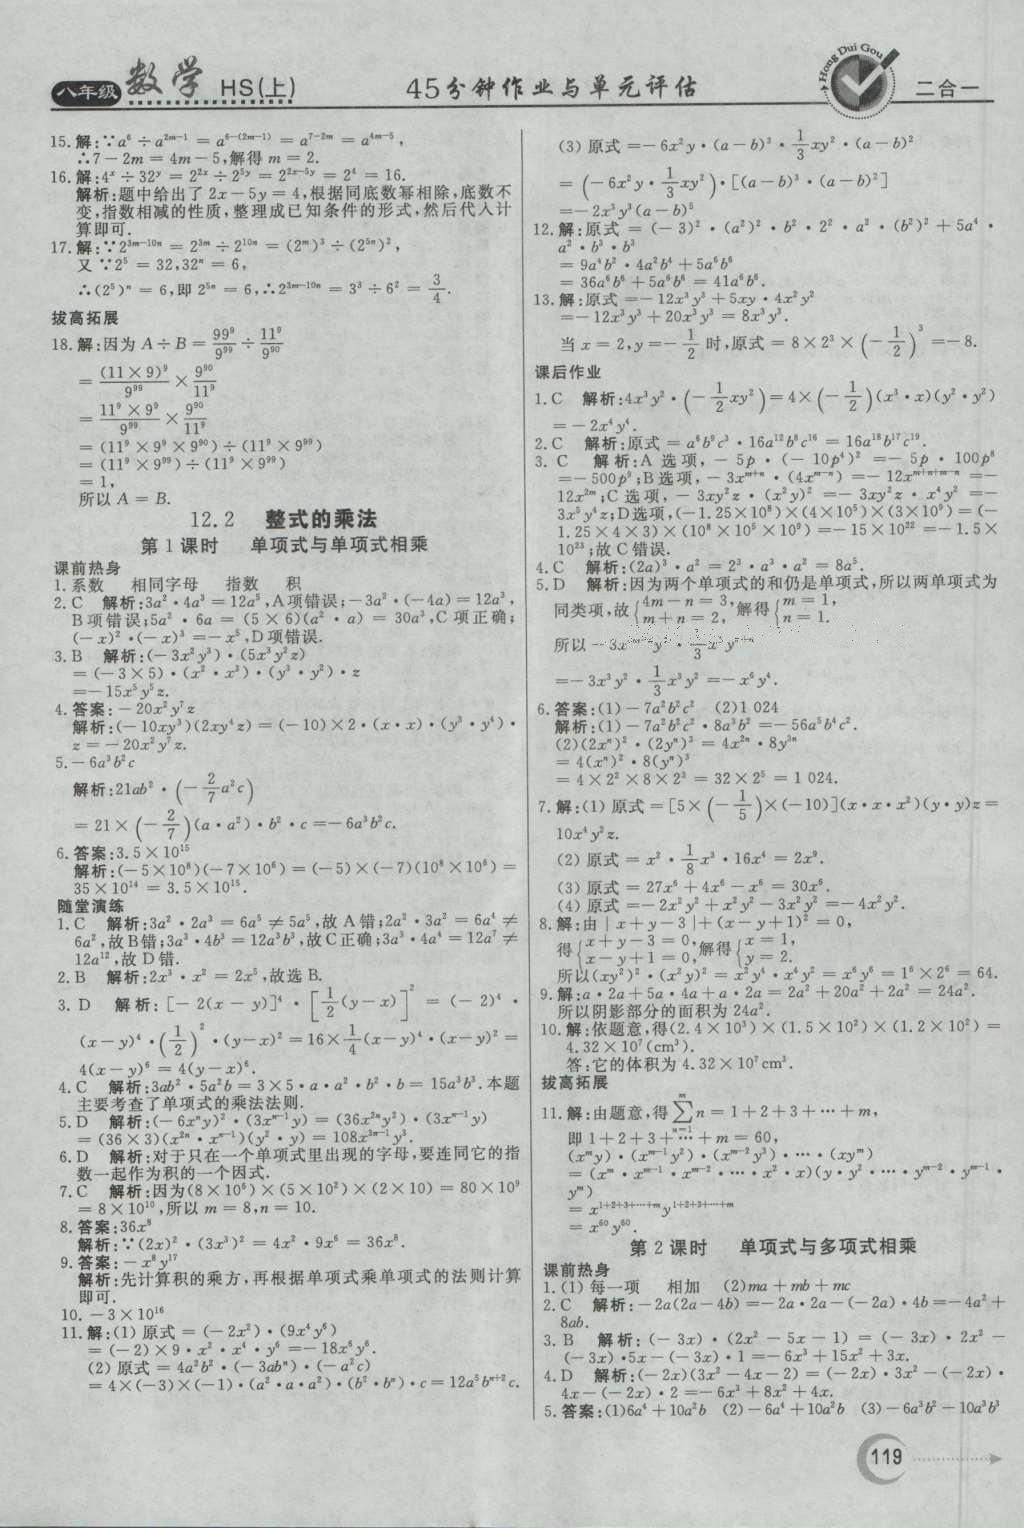 八年级 数学 HS(上) 45分钟作业与单元评估 Hong Dui Gou 二合一
15.解:∵a⁶÷a²ᵐ⁻¹=a⁶⁻⁽²ᵐ⁻¹⁾=a⁷⁻²ᵐ=a⁴ᵐ⁻⁵,
∴7-2m=4m-5,解得 m=2.
16.解:4ˣ÷32ʸ=2²ˣ÷2⁵ʸ=2²ˣ⁻⁵ʸ=2⁴=16.
解析:题中给出了 2x-5y=4,根据同底数幂相除,底数不
变,指数相减的性质,整理成已知条件的形式,然后代入计
算即可.
17.解:∵2³ᵐ⁻¹⁰ⁿ=2³ᵐ÷2¹⁰ⁿ=(2ᵐ)³÷(2⁵ⁿ)²,
又∵2⁵=32,32ⁿ=6,
∴(2⁵)ⁿ=6,即 2⁵ⁿ=6,∴2³ᵐ⁻¹⁰ⁿ=3³÷6²=3/4.
拔高拓展
18.解:因为 A÷B=99⁹/9⁹⁹÷11⁹/9⁹⁰
=(11×9)⁹/9⁹⁹×9⁹⁰/11⁹
=11⁹×9⁹/9⁹⁹×9⁹⁰/11⁹
=(11⁹×9⁹×9⁹⁰)÷(11⁹×9⁹⁹)
=(11⁹×9⁹⁹)÷(11⁹×9⁹⁹)
=1,
所以 A=B.
12.2 整式的乘法
第1课时 单项式与单项式相乘
课前热身
1.系数 相同字母 指数 积
2.C 解析:3a²·4a³=12a⁵,A项错误;-3a²·(-4a)=12a³,
B项错误;5a²·6a=(5×6)(a²·a)=30a³,C项正确;
(-x)²·(-x)³=-x⁵,D项错误.
3.B 解析:(-3x²y³)·(5x³y²z)
=(-3×5)·(x²·x³)·(y³·y²)·z
=-15x⁵y⁵z.
4.答案:-20x²y⁷z
解析:(-10xy³)(2xy⁴z)=(-10)×2·(x·x)·(y³·y⁴)·
z=-20x²y⁷z.
5.-6a³b²c
解析:21ab²·(-2/7a²c)
=21×(-2/7)(a·a²)·b²·c=-6a³b²c.
6.答案:3.5×10¹⁵
解析:(-5×10⁸)(-7×10⁶)=(-5)×(-7)(10⁸×10⁶)=
35×10¹⁴=3.5×10¹⁵.
随堂演练
1.C 解析:3a²·2a³=6a⁵≠5a⁵,故A错;2a²·3a²=6a⁴≠
6a²,故B错;3a³·4b³=12a³b³,故C正确;3a³·4a⁴=12a⁷≠
12a¹²,故D错.
2.B 解析:2x³·x²=2x⁵,故选B.
3.D 解析:[-2(x-y)]⁴·[1/2(y-x)]²=(-2)⁴·
(x-y)⁴·(1/2)²·(y-x)²=16×1/4(x-y)⁴·(x-y)²=
4(x-y)⁶=4(y-x)⁶.
4.C 解析:3ab²·5a²b=3×5·a·a²·b²·b=15a³b³.本题
主要考查了单项式的乘法法则.
5.D 解析:(-6xⁿy)²·(3xⁿ⁻¹y)=(36x²ⁿy²)·(3xⁿ⁻¹y)
=(36×3)(x²ⁿ·xⁿ⁻¹)(y²·y)=108x³ⁿ⁻¹y³.
6.D 解析:对于只在一个单项式里出现的字母,要连同它的指
数一起作为积的一个因式.
7.C 解析:因为(8×10⁶)×(5×10²)×(2×10)=80×10⁹
=8×10¹⁰,所以 m=8,n=10.
8.答案:36x⁸
解析:∵(2x)²·(3x³)²=4x²·9x⁶=36x⁸.
9.答案:-x⁸y¹⁷
解析:先计算积的乘方,再根据单项式乘单项式的法则计算
即可.
10.-3×10¹⁶
11.解:(1)原式=(-2x²)·(9x⁴y⁶)
=(-2)×9·x²·x⁴·y⁶=-18x⁶y⁶.
(2)原式=4a²b²·(-3abⁿ)·(-a²c)
=4×(-3)×(-1)·(a²·a·a²)·(b²·bⁿ)·c=12a⁵bⁿ⁺²c.
(3)原式=-6x²y·(a-b)³·1/3xy²·(a-b)²
=(-6x²y·1/3xy²)·[(a-b)³·(a-b)²]
=-2x³y³(a-b)⁵
12.解:原式=(-3)²·(a²)²·b²·2²·a²·(b²)²+5a⁴·
a²·b³·b³
=9a⁴b²·4a²b⁴+5a⁶b⁶
=36a⁶b⁶+5a⁶b⁶=41a⁶b⁶.
13.解:原式=-12x³y³+5xy·4x²y²
=-12x³y³+20x³y³=8x³y³.
当 x=2,y=-1/2时,原式=8×2³×(-1/2)³=-8.
课后作业
1.C 解析:4x³y²·(-1/2xy²)=4×(-1/2)(x³·x)(y²·y²)
=-2x⁴y⁴.
2.C 解析:原式=a⁶b⁹c³·16a¹²b⁸c¹⁶=16a¹⁸b¹⁷c¹⁹.
3.C 解析:A 选项,-5p·(-10p⁴)²=-5p·100p⁸
=-500p⁹;B选项,-3xᵐ⁺ⁿ·(4xᵐ⁻ⁿ)=-12xᵐ⁺ⁿ⁺ᵐ⁻ⁿ=-
12x²ᵐ;C 选项,-3xy²z·(x²y)²=-3xy²z·x⁴y²=-
3x⁵y⁴z;D选项,(-1.25×10⁸)×(4×10⁵)×(3×10⁹)=(-
1.25×4×3)×(10⁸×10⁵×10⁹)=-15×10²²=-1.5×
10²³;故C错误.
4.C 解析:(2a)³·a²=2³·a³·a²=8a⁵.
5.D 解析:因为两个单项式的和仍是单项式,所以两单项式为
同类项,故{4m-n=3, m+n=2,解得{m=1, n=1.
所以
=-3x³y²·1/3x³y²=-x⁶y⁴.
6.答案:(1)-7a²b²c² (2)1 024
解析:(1)-7a²b²c²·8a³b²=-56a⁵b⁴c².
(2)(2xⁿ)²·(2yⁿ)³=4x²ⁿ·8y³ⁿ
=4(xⁿ)²·8(yⁿ)³
=4×2²×8×2³=32×2⁵=1 024.
7.解:(1)原式=[5×(-1/5)×(-10)](x·x·x²)(y·y)z=
10x⁴y²z.
(2)原式=x²·1/8x³·16x⁴=2x⁹.
(3)原式=27x⁶+4x⁶-x⁶=30x⁶.
(4)原式=-2x²y²+x²y²-3x²y²=-4x²y².
8.解:由|x+y-3|+(x-y+1)²=0,
得{x+y-3=0, x-y+1=0,解得{x=1, y=2.
所以(xy²)²·(x²y)²=x²y⁴·x⁴y²=x⁶y⁶=1⁶×2⁶=64.
9.解:a·2a+5a·4a+a·2a=2a²+20a²+2a²=24a².
所以阴影部分的面积为24a².
10.解:依题意,得(2.4×10³)×(1.5×10²)×(1.2×10²)=
4.32×10⁷(cm³).
答:它的体积为4.32×10⁷cm³.
拔高拓展
11.解:由题意,得 m∑n=1 n=1+2+3+…+m,
即1+2+3+…+m=60,
(xᵐy)·(xᵐ⁻¹y²)·(xᵐ⁻²y³)·…·(xyᵐ)
=(xᵐ·xᵐ⁻¹·xᵐ⁻²·…·x²·x)(y·y²·…·yᵐ⁻²·yᵐ⁻¹·
yᵐ)
=x¹⁺²⁺³⁺…⁺ᵐy¹⁺²⁺³⁺…⁺ᵐ
=x⁶⁰y⁶⁰.
第2课时 单项式与多项式相乘
课前热身
1.(1)每一项 相加 (2)ma+mb+mc
2.C 解析:-2a(2a-4b)=-2a·2a-(-2a)·4b=-4a²+
8ab.
3.B 解析:(-3x)·(2x²-5x-1)=(-3x)·2x²-
(-3x)·5x-(-3x)·1=-6x³+15x²+3x.
4.D 解析:(-2x)(3x²-4x-2)=(-2x)·3x²-(-2x)·
4x-(-2x)·2=-6x³+8x²+4x.
5.答案:(1)6a⁴+10a²b (2)-6a⁴+10a²b (3)-6a³b²-10a³b³
119